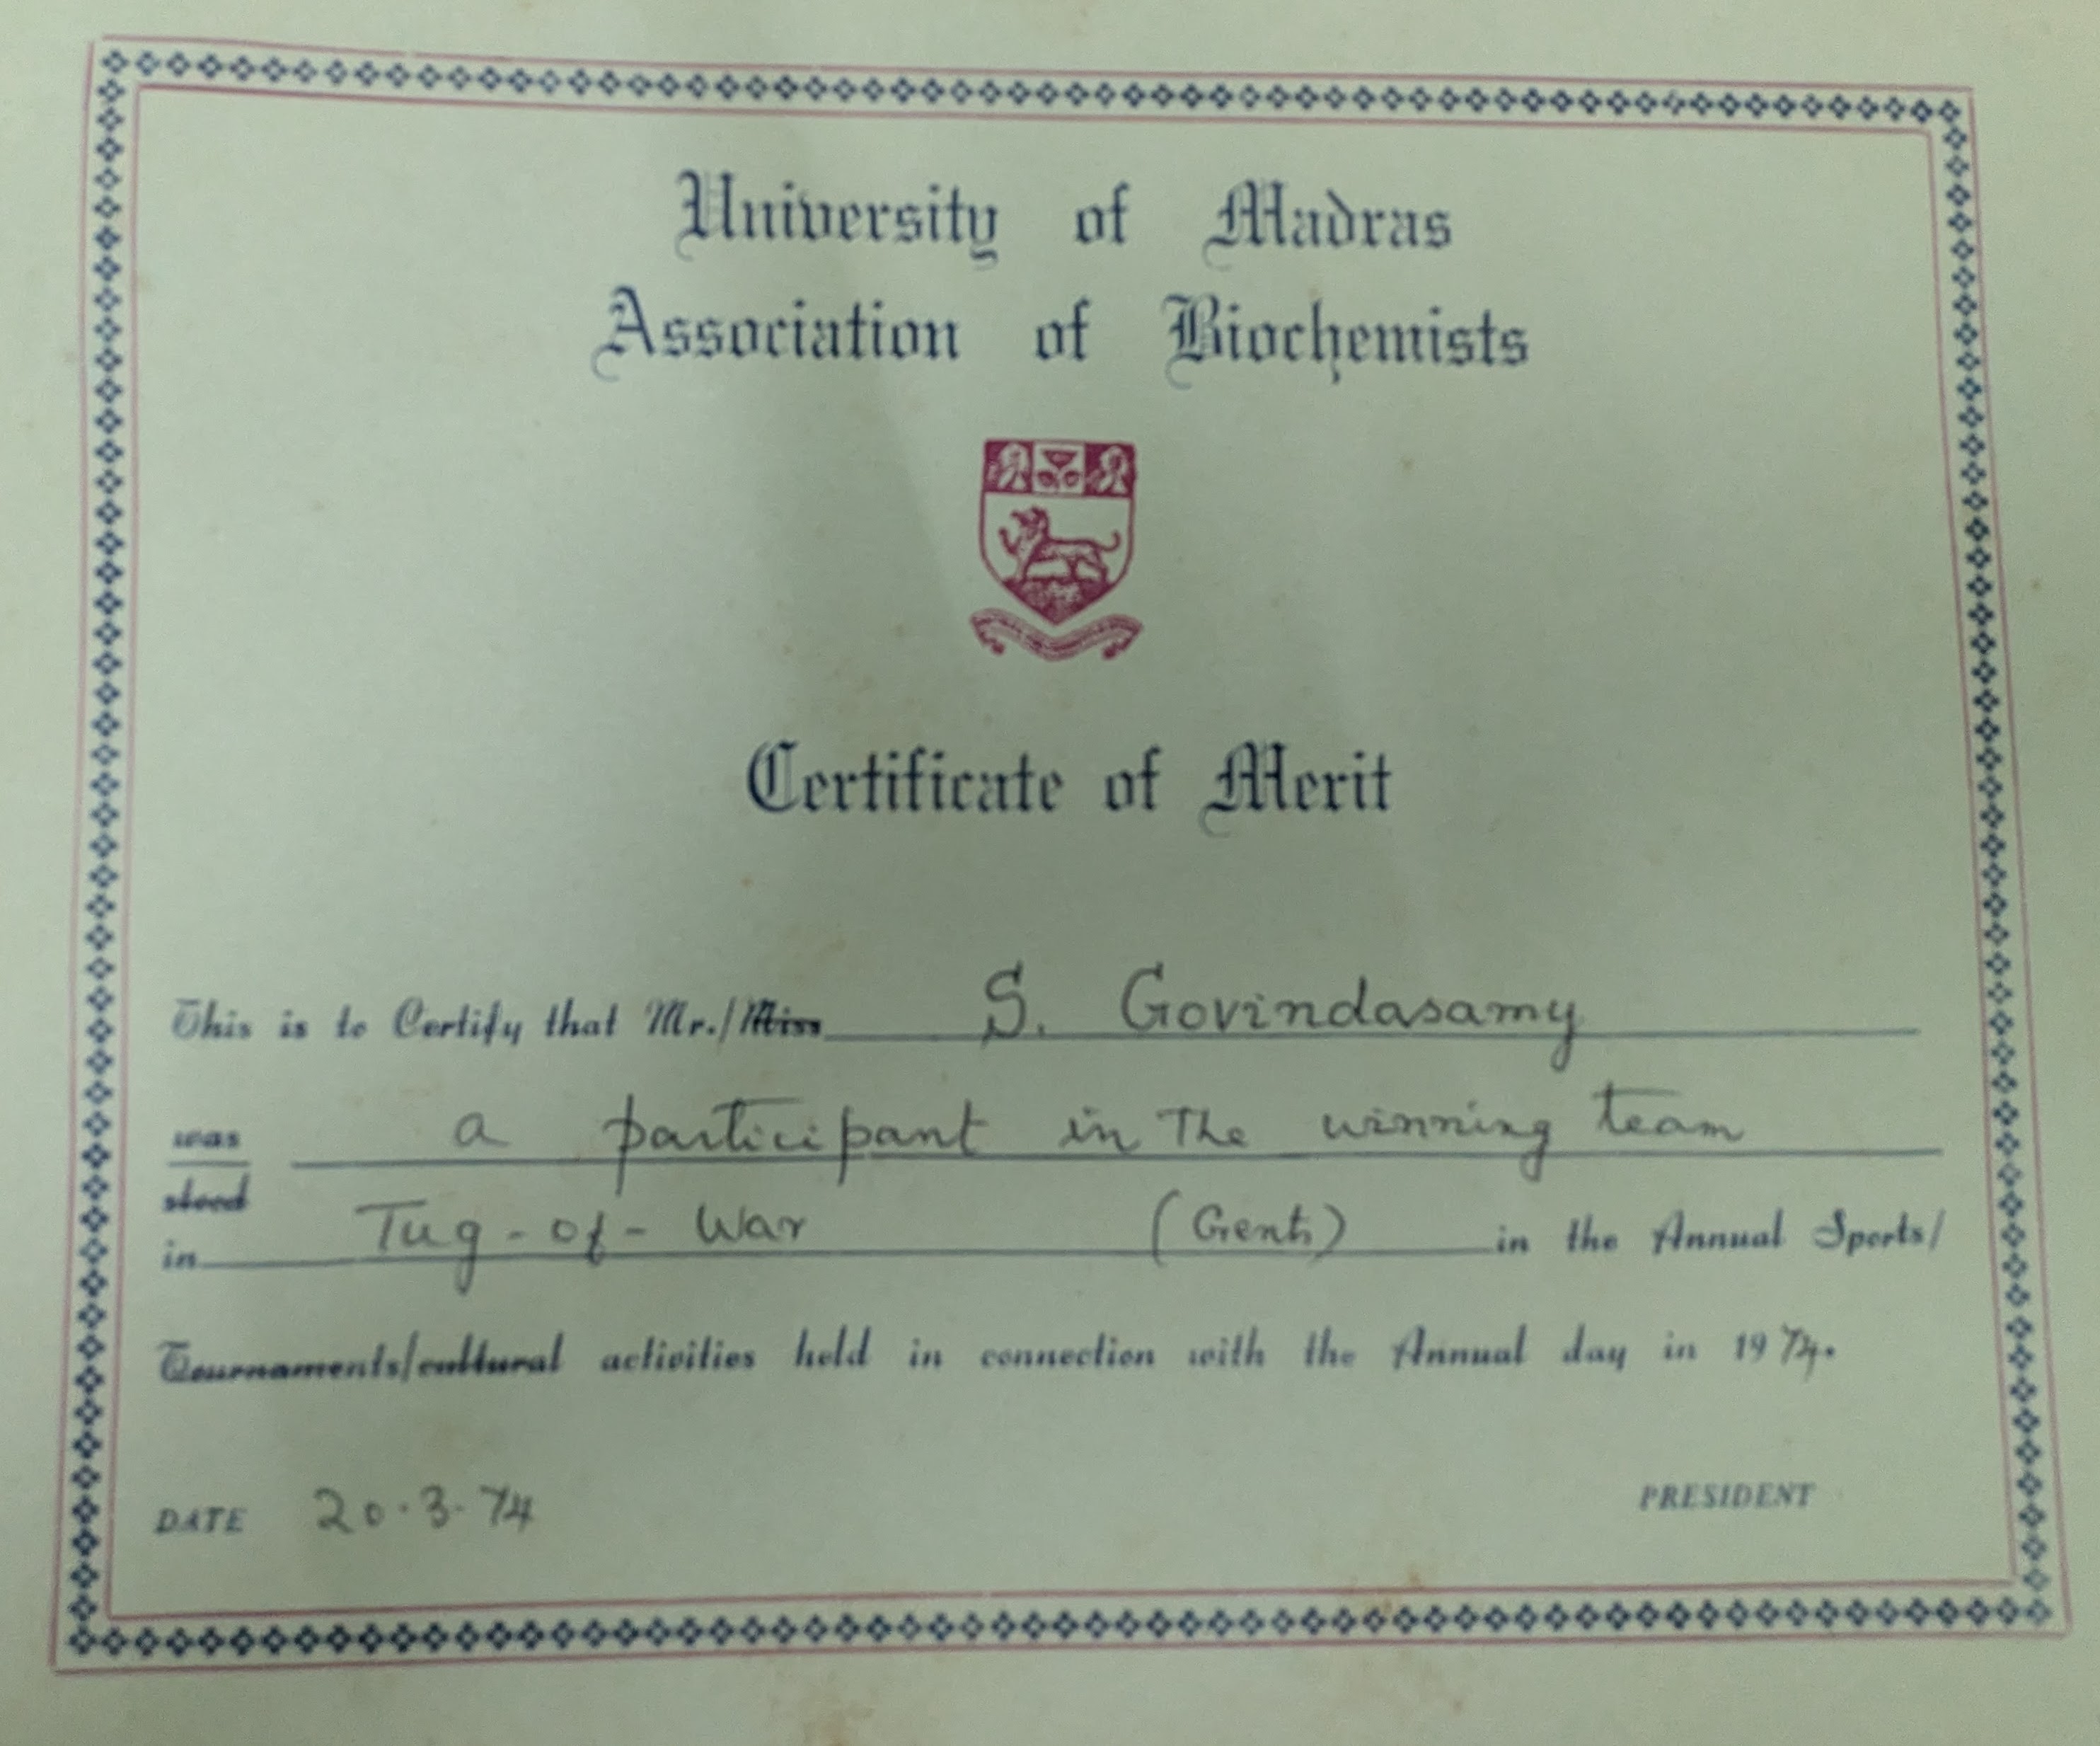 University of Madras
Association of Biochemists
Certificate of Merit
This is to Certify that Mr./Miss S. Govindasamy
was a participant in The winning team
stood
in Tug-of-War (Gents) in the Annual Sports/
Tournaments/cultural activities held in connection with the Annual day in 1974.
DATE 20.3.74
PRESIDENT